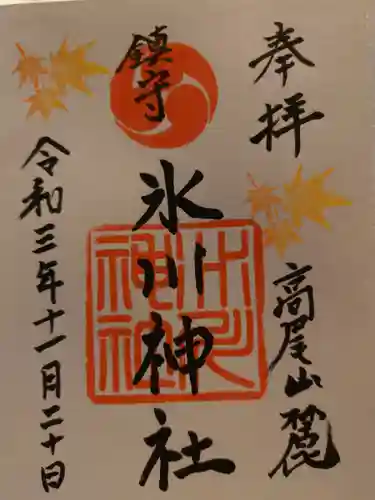 奉拝
高尾山麓
鎮守
氷川神社
令和三年十一月二十日